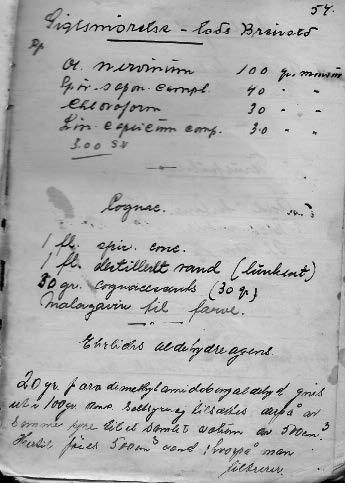 57.
Gigtsmörelse - Lads Breivold
Rp
Ol. nervinum 100 gr. minim
Spir. sapon. campl 40 " "
Chloroform 30 " "
Lin. capsicum comp. 30 " "
3.00
Cognac.
1 fl. spir. conc.
1 fl. destillert vand (lunkent)
30 gr. cognacessents (30 gr)
Malagavin til farve.
Ehrlichs aldehydreagens.
20 gr. paradimethylamidobenzaldehyd gnies
ut i 100 gr. conc. saltsyre og tilsættes derpå av
samme syre til et samlet volum av 500 cm³
Hertil föies 500 cm³ vand, hvorpå man
filtrerer.